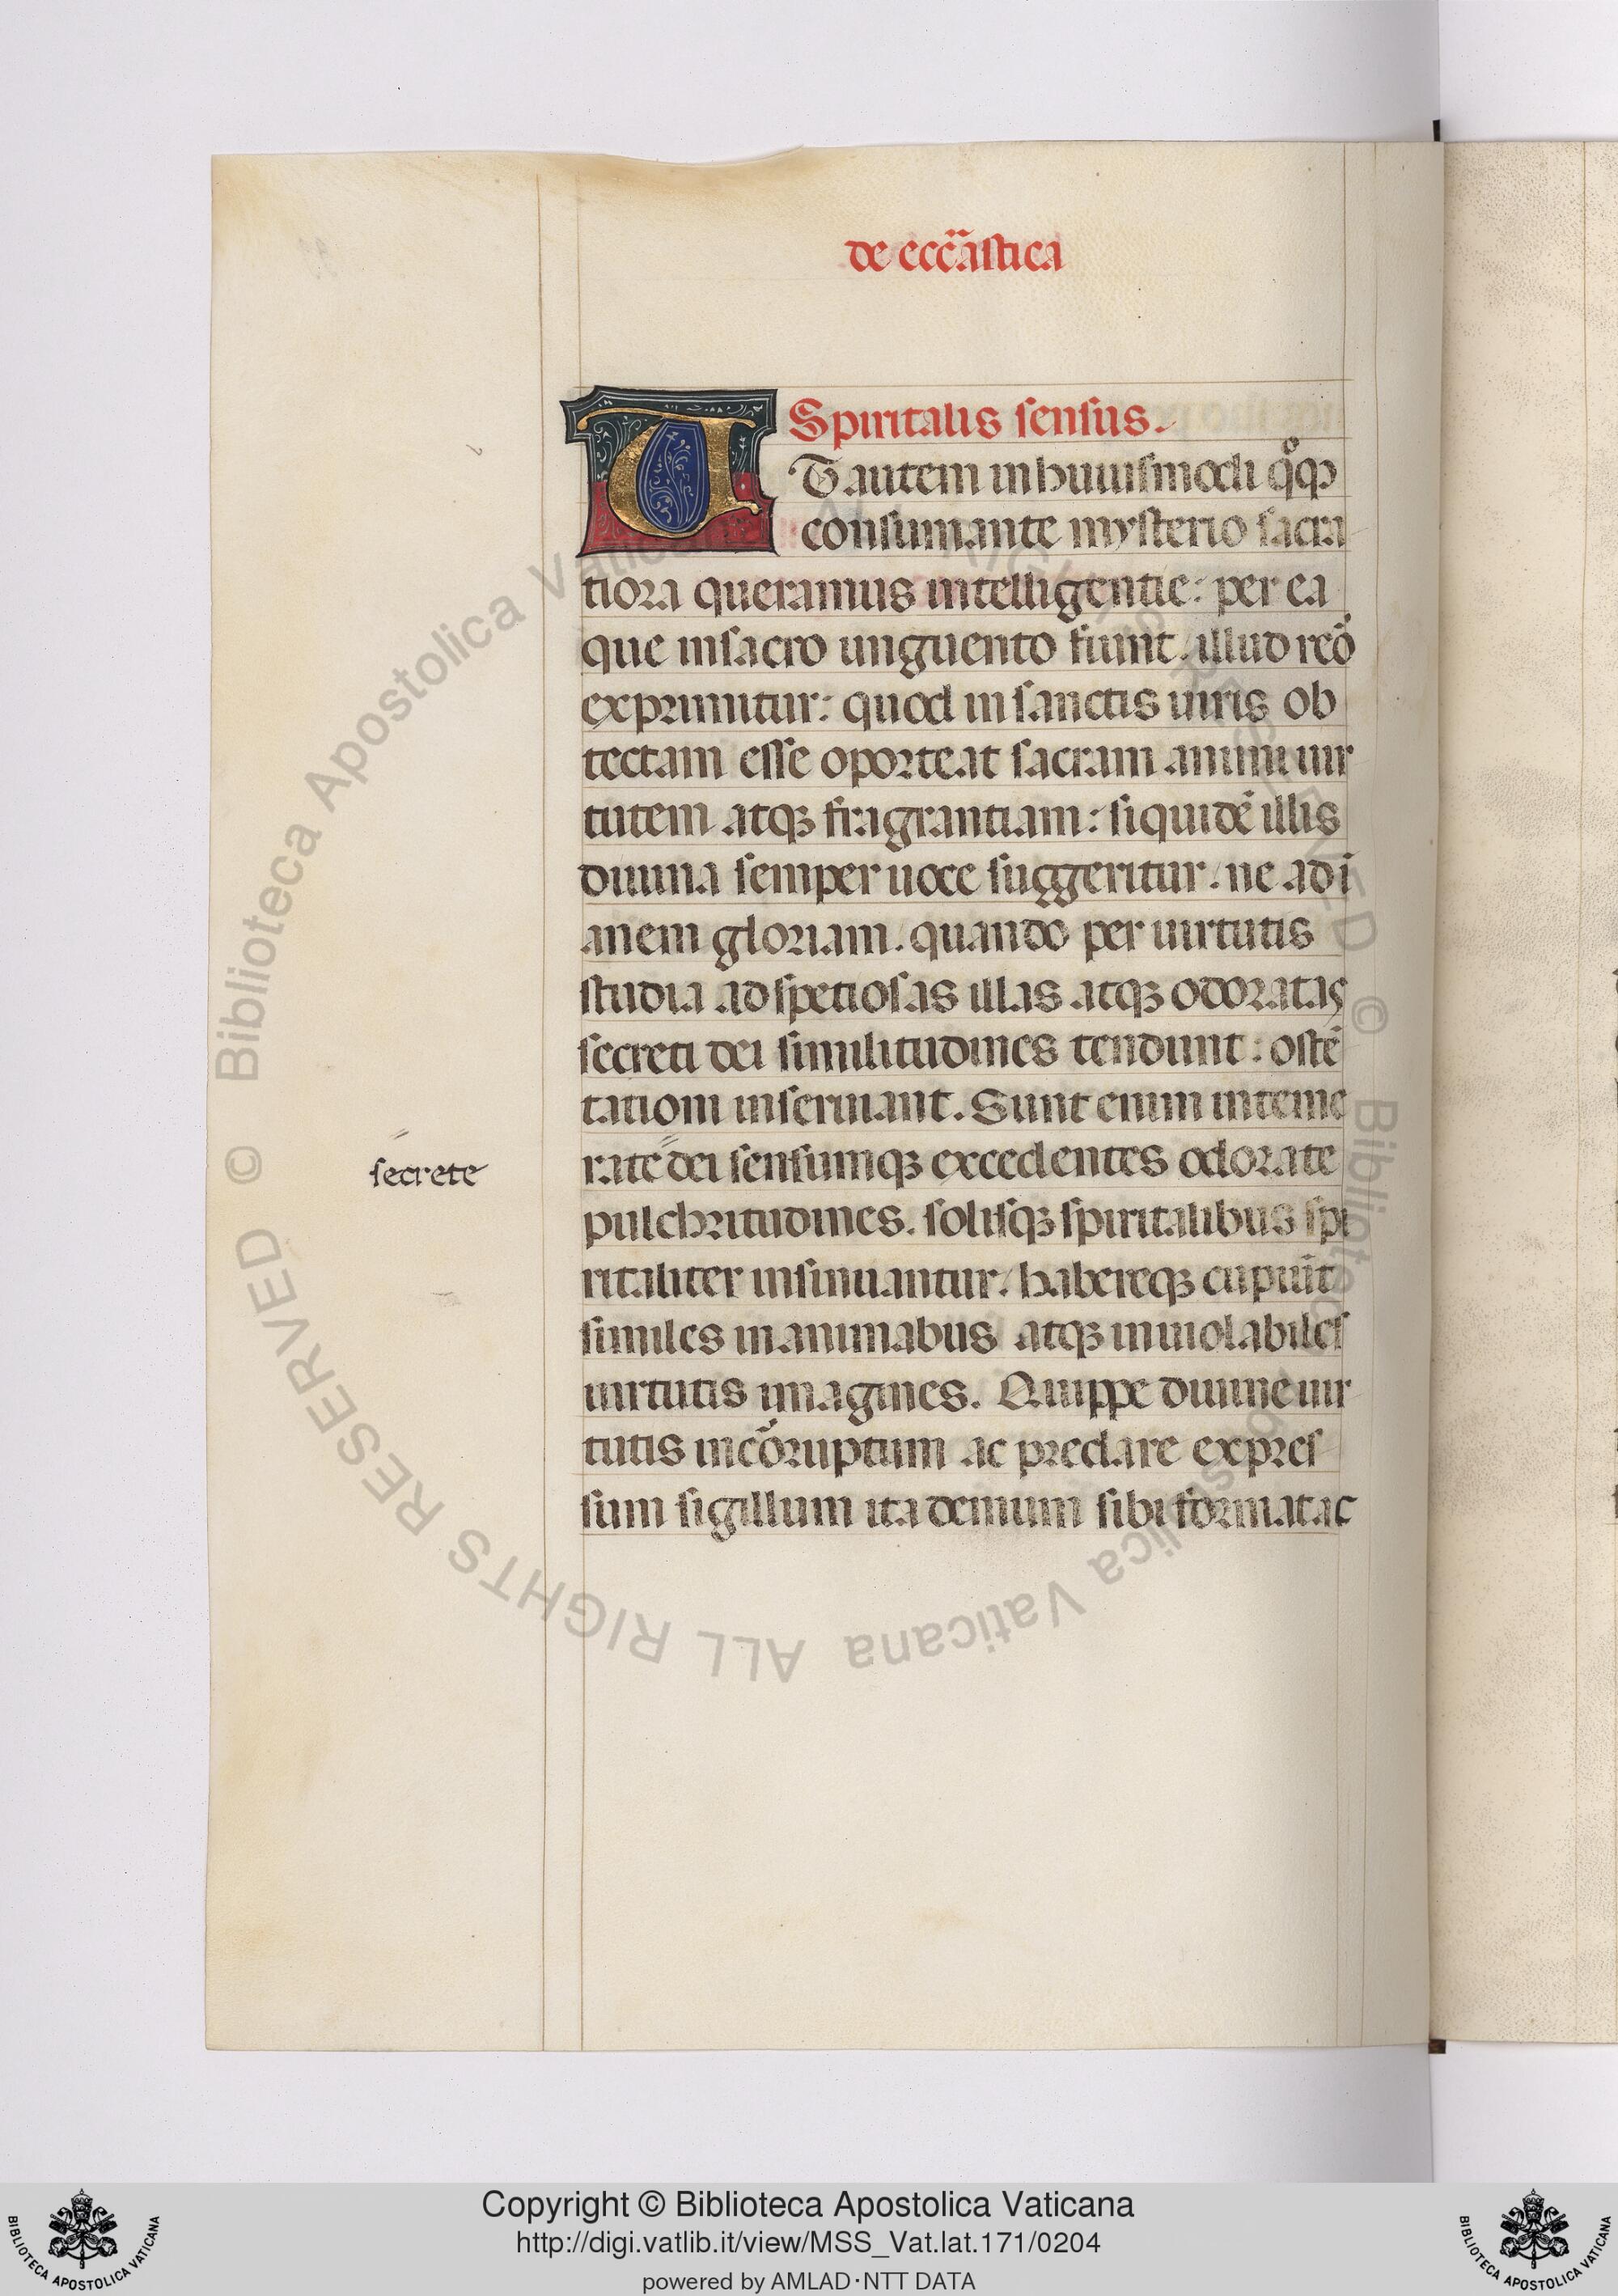 de ecc̃astica
Spiritalis sensus.
UT autem in huiusmodi qͦqꝫ
consumante mysterio sacra
tiora queramus intelligentie: per ea
que in sacro unguento fiunt / illud reõ
exprimitur: quod in sanctis uiris ob
tectam esse oporteat sacram animi uir
tutem atqꝫ fragrantiam: siquidẽ illis
diuina semper uoce suggeritur / ne ad ĩ
anem gloriam. quando per uirtutis
studia ad spetiosas illas atqꝫ odoratas
secreti dei similitudines tendunt: ostẽ
tationi inseruiant. Sunt enim inteme
rate dei sensumqꝫ excedentes odorate
secrete
pulchritudines. solisqꝫ spiritalibus spi
ritaliter insinuantur / habereqꝫ cupiũt
similes in animabus atqꝫ inuiolabiles
uirtutis imagines. Quippe diuine uir
tutis incõruptum ac preclare expres
sum sigillum ita demum sibi format ac
© Biblioteca Apostolica Vaticana ALL RIGHTS RESERVED
Copyright © Biblioteca Apostolica Vaticana
http://digi.vatlib.it/view/MSS_Vat.lat.171/0204
powered by AMLAD·NTT DATA
BIBLIOTECA APOSTOLICA VATICANA
BIBLIOTECA APOSTOLICA VATICANA